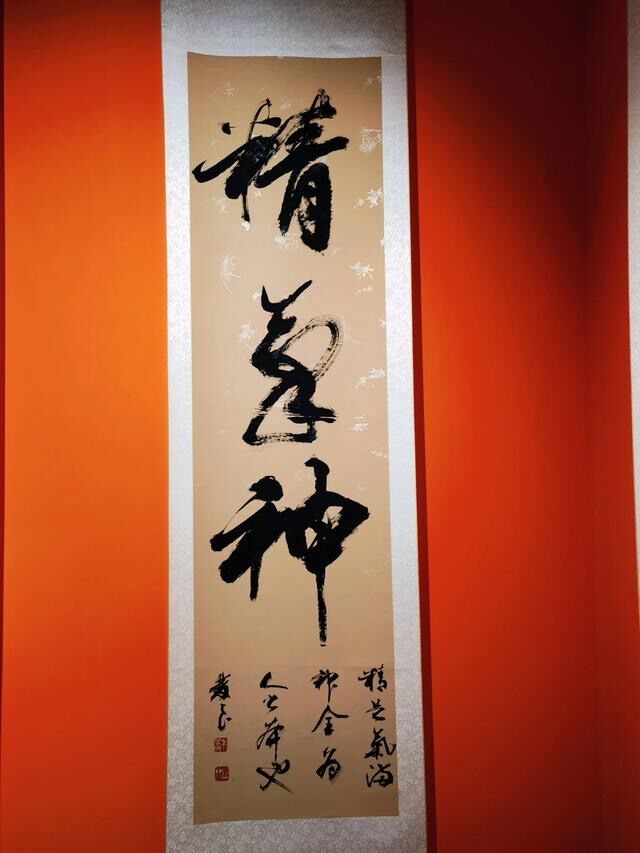 精
氣
神
精足氣滿
神全為
人之本也